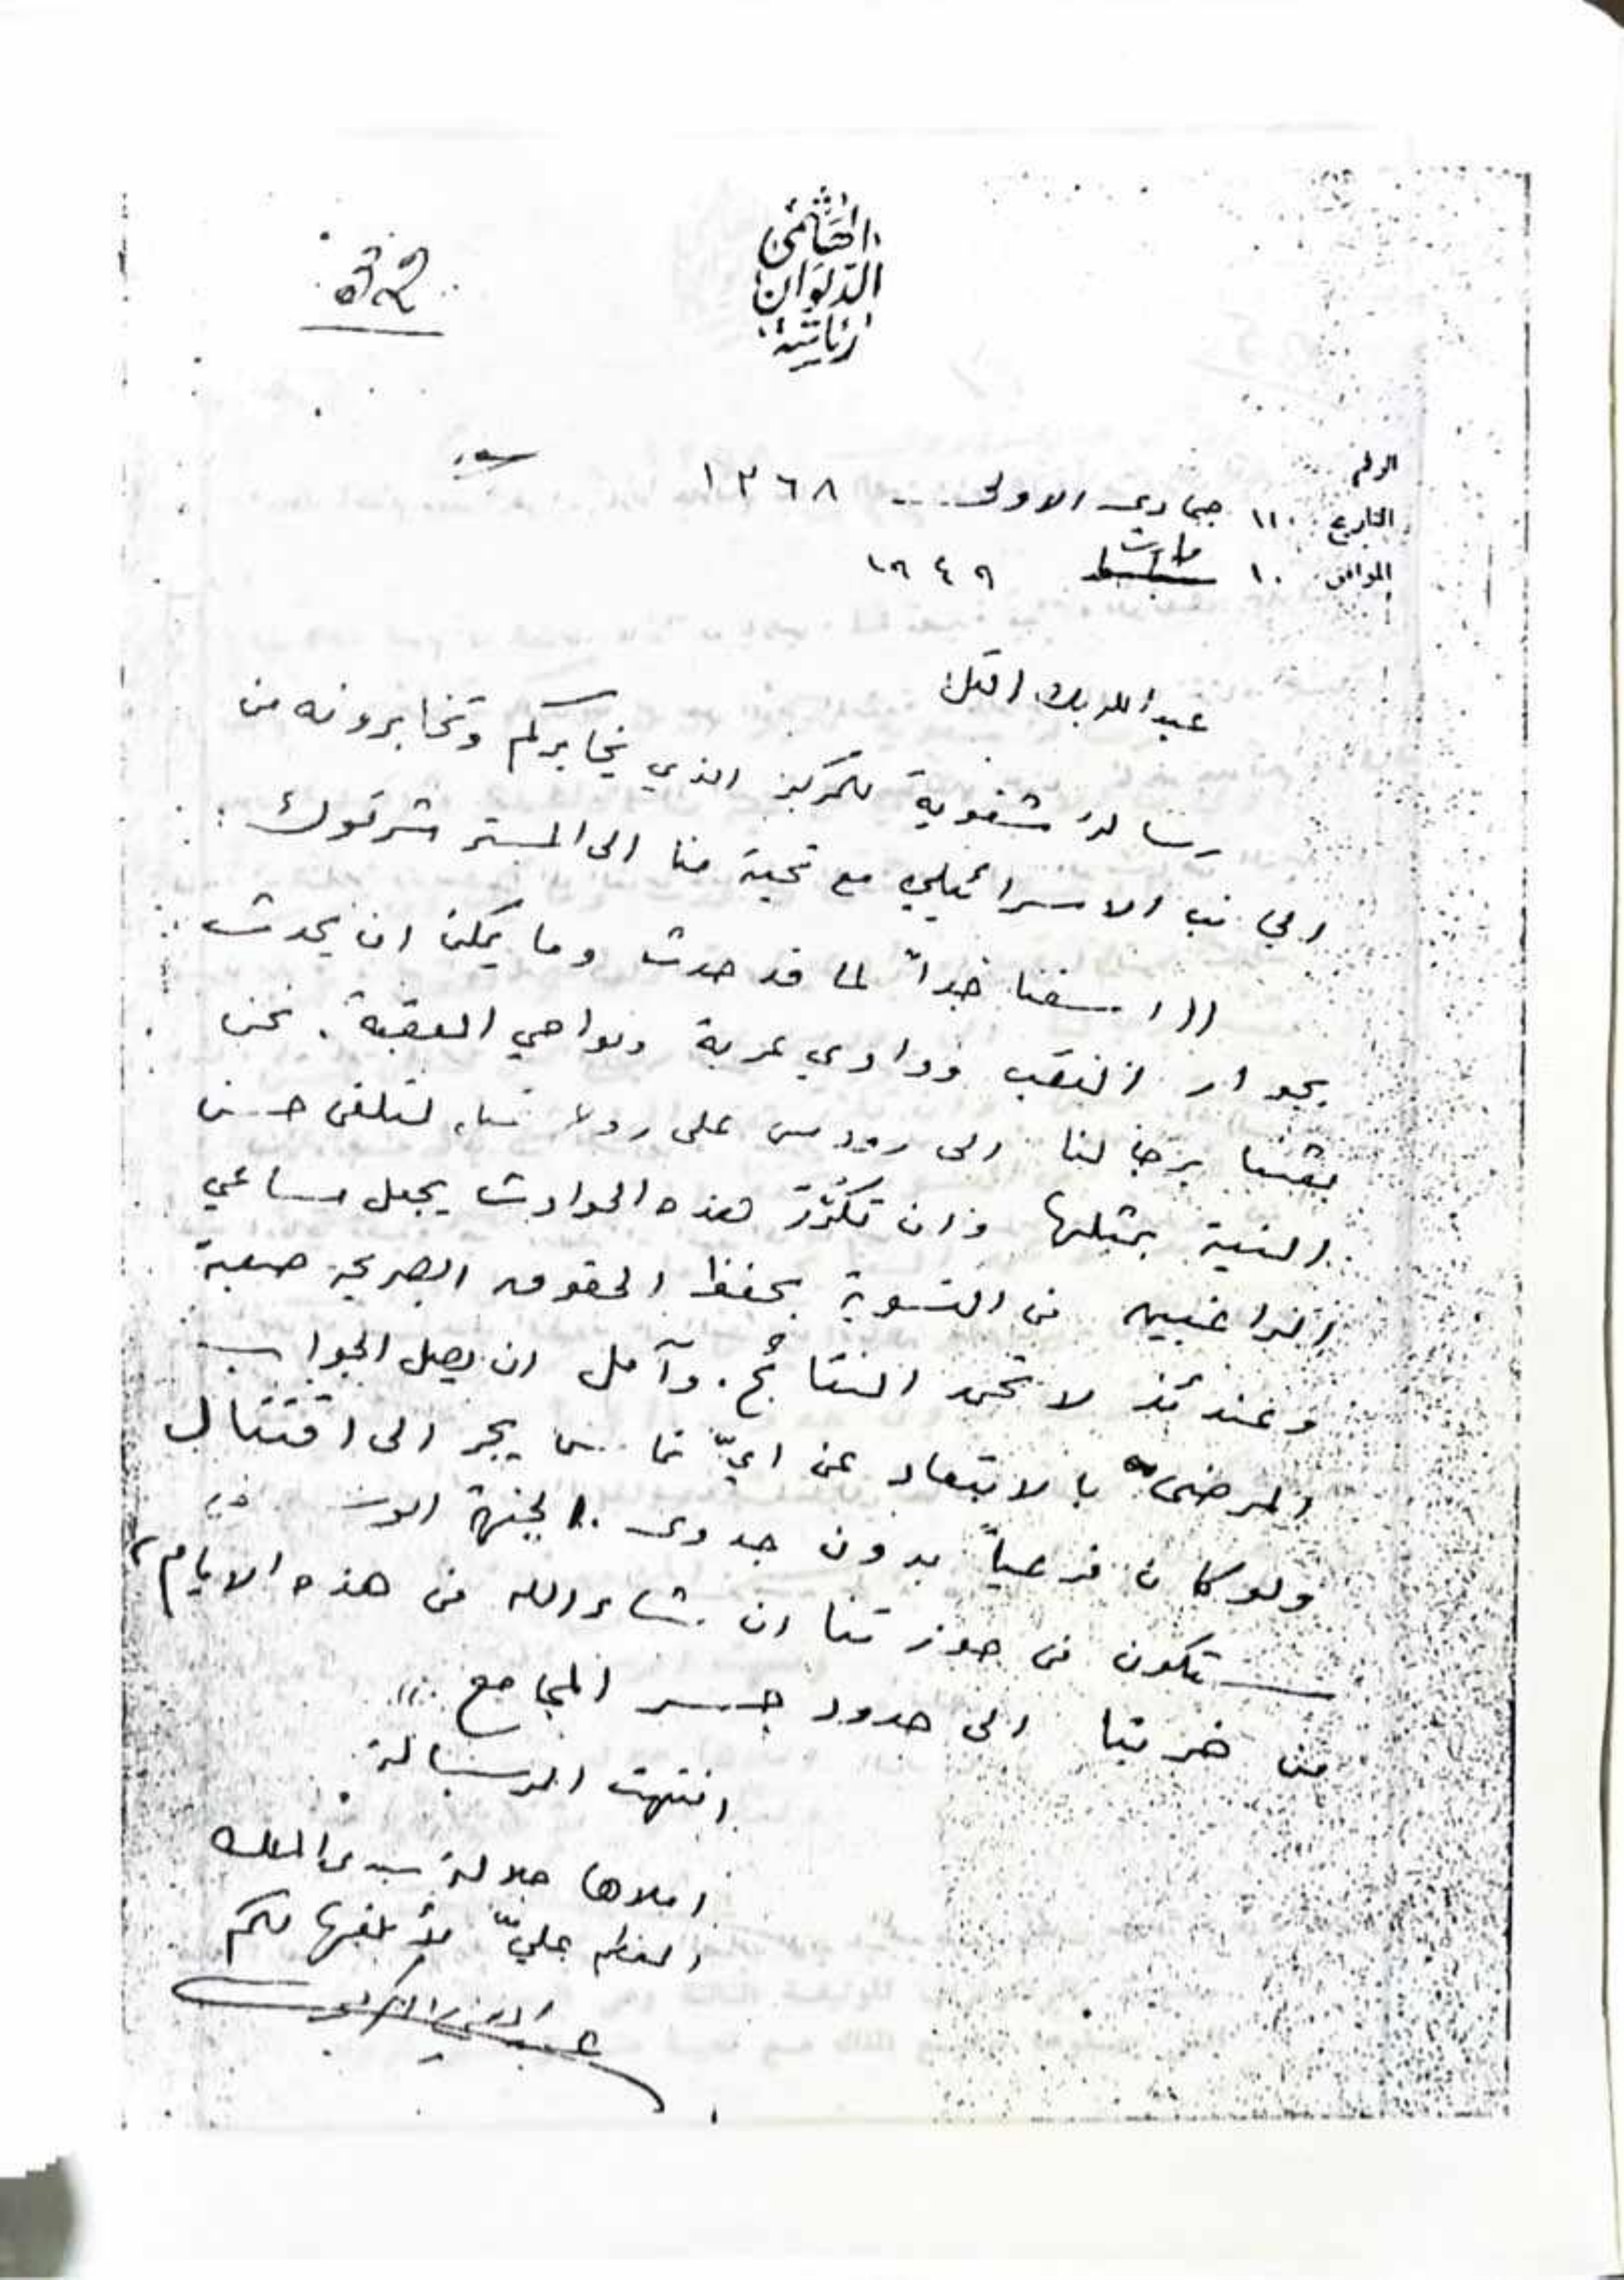 رئاسة
الديوان
الهاشمي
٥٢
الرقم
سري
التاريخ ١١ جمادى الاولى ١٣٦٨
الموافق ١٠ مارت ١٩٤٩
عبدالله بك التل
رسالة شفوية للمركز الذي يخابركم وتخابرونه من
الجانب الاسرائيلي مع تحية منا الى المستر شرتوك :
(( اسفنا جداً لما قد حدث وما يمكن ان يحدث
بجوار النقب ووادي عربة ونواحي العقبة . نحن
بعثنا برجالنا الى رودس على رؤوس لتلقى حسن
النية بمثلها وان تكرّر هذه الحوادث يجعل مساعي
الراغبين في التسوية بحفظ الحقوق الصريحة صعبة
وعندئذ لا تحمد النتائج . وآمل ان يصل الجواب
المرضي بالابتعاد عن ايّ تماس يجر الى اقتتال
ولو كان فرعياً بدون جدوى . الجبهة
ستكون في حوزتنا ان شاء الله في هذه الايام
من الى حدود جسر المجامع ))
انتهت الرسالة
املاها جلالة سيدي الملك
المعظم عليّ لأبلغها لكم